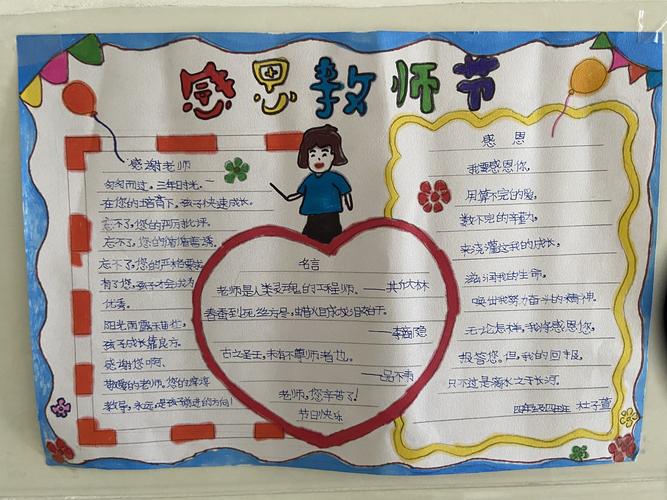 感恩教师节
感谢老师
匆匆而过。三年时光。
在您的培育下。孩子快速成长。
忘不了,您的严厉批评。
忘不了,您的循循善诱。
忘不了,您的严格要求
有了您,孩子才会成为
优秀。
阳光雨露
孩子成长靠良方。
感谢您啊、
敬爱的老师。您的谆谆
教导,永远是孩子前进的方向!
名言
老师是人类灵魂的工程师。——
春蚕到死丝方尽,蜡炬成灰泪始干。
——李商隐
古之圣王,未有不尊师者也。
——吕不韦
老师,您辛苦了!
节日快乐
感恩
我要感恩您,
用算不完的爱,
数不完的辛勤,
来浇灌这我的成长,
滋润我的生命。
唤出我努力奋斗的精神。
无论怎样,我将感恩您,
报答您。但,我的回报,
只不过是滴水之于长河。
杜子萱